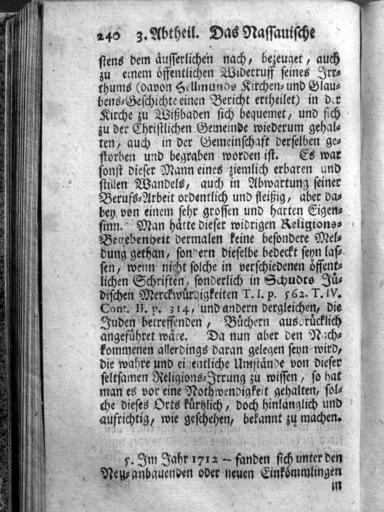 240 3. Abtheil. Das Nassauische
stens dem äusserlichen nach, bezeuget, auch
zu einem öffentlichen Widerruff seines Irr-
thums (davon Hellmunds Kirchen- und Glau-
bens-Geschichte einen Bericht ertheilet) in der
Kirche zu Wißbaden sich bequemet, und sich
zu der Christlichen Gemeinde wiederum gehal-
ten, auch in der Gemeinschaft derselben ge-
storben und begraben worden ist. Es war
sonst dieser Mann eines ziemlich erbaren und
stillen Wandels, auch in Abwartung seiner
Berufs-Arbeit ordentlich und fleißig, aber da-
bey von einem sehr grossen und harten Eigen-
sinn. Man hätte dieser widrigen Religions-
Begebenheit dermalen keine besondere Mel-
dung gethan, sondern dieselbe bedeckt seyn las-
sen, wenn nicht solche in verschiedenen öffent-
lichen Schriften, sonderlich in Schudts Jü-
dischen Merckwürdigkeiten T. I. p. 562. T. IV.
Cont. II. p. 314, und andern dergleichen, die
Juden betreffenden, Büchern ausdrücklich
angeführet wäre. Da nun aber den Nach-
kommenen allerdings daran gelegen seyn wird,
die wahre und eigentliche Umstände von dieser
seltsamen Religions-Irrung zu wissen, so hat
man es vor eine Nothwendigkeit gehalten, sol-
che dieses Orts kürtzlich, doch hinlänglich und
aufrichtig, wie geschehen, bekannt zu machen.
5. Im Jahr 1712 – fanden sich unter den
Neu-anbauenden oder neuen Einkömmlingen
in